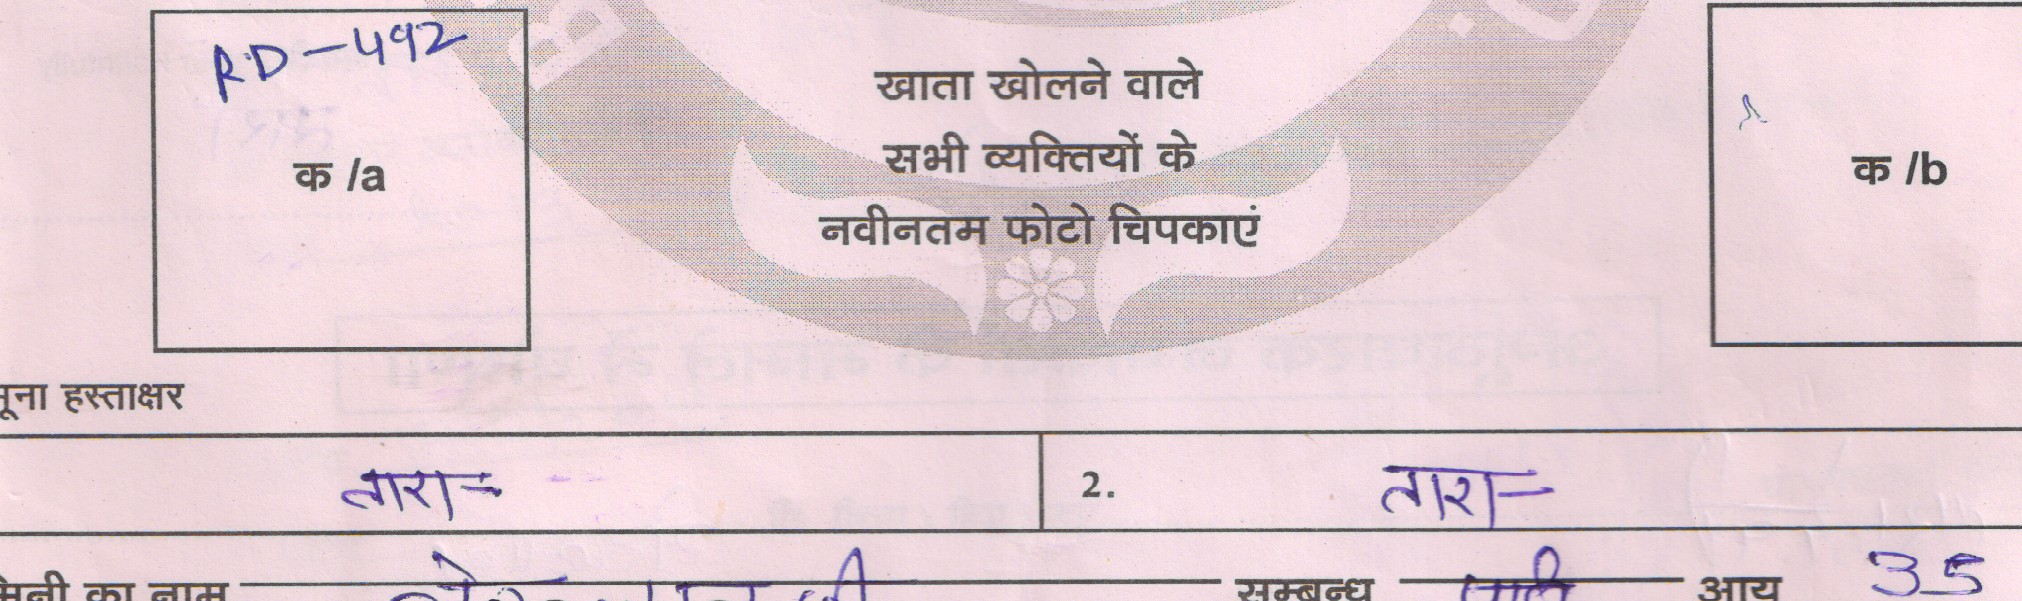 RD-492
क /a
खाता खोलने वाले
सभी व्यक्तियों के
नवीनतम फोटो चिपकाएं
क /b
मूना हस्ताक्षर
तारा 2. तारा
मिनी का नाम सम्बन्ध पति आयु 35